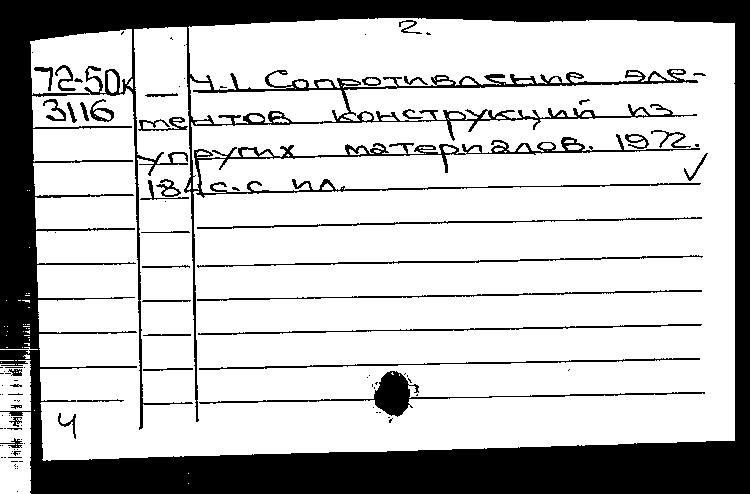 2.
72-50к — Ч.1. Сопротивление эле-
3116 ментов конструкций из
упругих материалов. 1972.
184 с. с ил. ✓
4